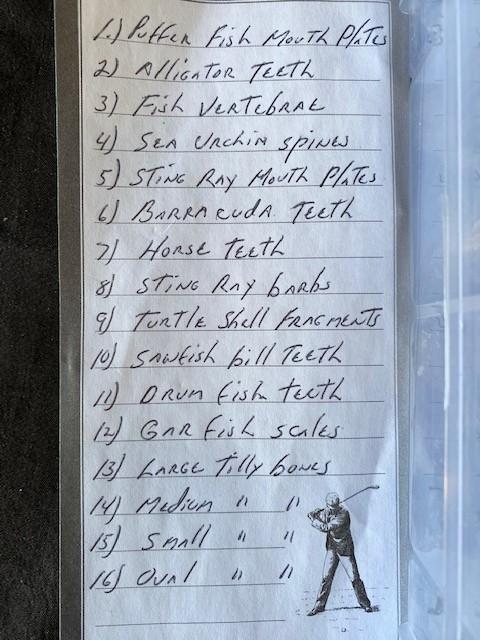 1.) Puffer Fish Mouth Plates
2) Alligator Teeth
3) Fish Vertebrae
4) Sea Urchin spines
5) Sting Ray Mouth Plates
6) Barracuda Teeth
7) Horse Teeth
8) Sting Ray barbs
9) Turtle Shell Fragments
10) Sawfish bill Teeth
11) Drum fish teeth
12) Gar fish scales
13) Large Tilly bones
14) Medium " "
15) Small " "
16) Oval " "